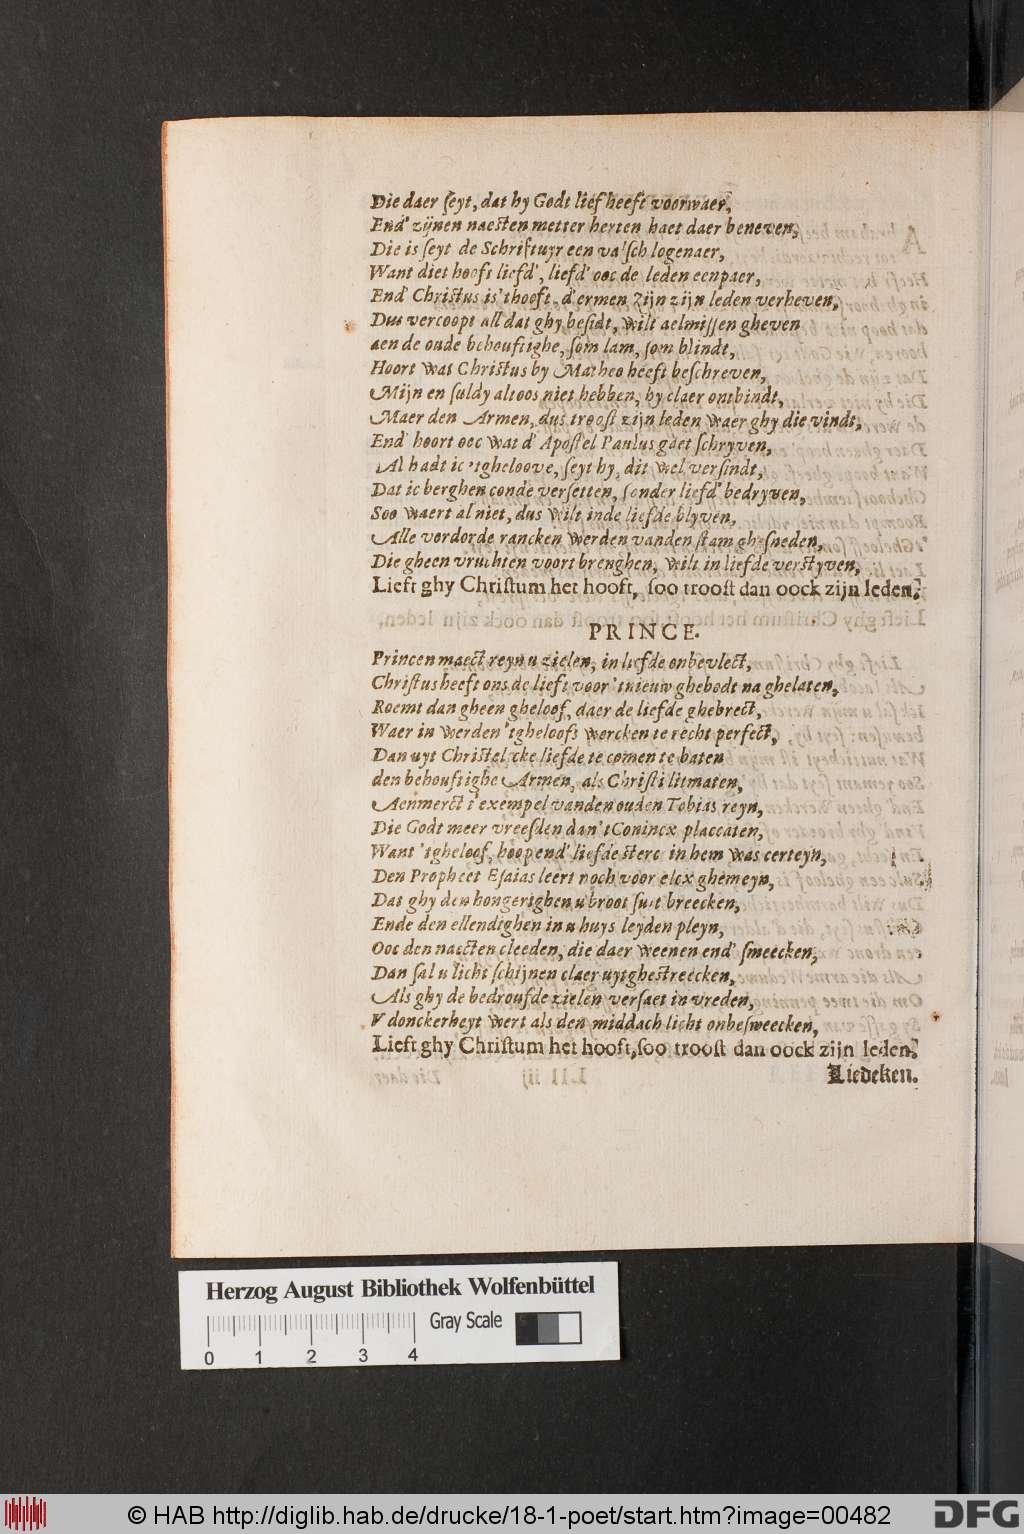 Die daer ſeyt, dat hy Godt lief heeft voorwaer,
End' zijnen naesten metter herten haet daer beneven,
Die is ſeyt de Schriftuyr een valſch logenaer,
Want diet hooft liefd', liefd' ooc de leden eenpaer,
End' Christus is 't hooft, d'ermen Zijn zijn leden verheven,
Dus vercoopt all dat ghy beſidt, wilt aelmiſſen gheven
aen de oude behouftighe, ſom lam, ſom blindt,
Hoort wat Christus by Matheo heeft beſchreven,
Mijn en ſuldy altoos niet hebben, hy claer ontbindt,
Maer den Armen, dus troost zijn leden waer ghy die vindt,
End' hoort oec wat d' Apostel Paulus gaet ſchryven,
Al hadt ic 'tgheloove, ſeyt hy, dit wel verſindt,
Dat ic berghen conde verſetten, ſonder liefd' bedryven,
Soo waert al niet, dus wilt inde liefde blyven,
Alle verdorde rancken werden vanden stam gheſneden,
Die gheen vruchten voort brenghen, wilt in liefde verstyven,
Lieft ghy Chriſtum het hooft, ſoo troost dan oock zijn leden.
PRINCE.
Princen maect reyn u zielen, in liefde onbevlect,
Christus heeft ons de lieft voor 't nieuw ghebodt na ghelaten,
Roemt dan gheen gheloof, daer de liefde ghebrect,
Waer in werden 'tgheloofs wercken te recht perfect,
Dan uyt Christelicke liefde te comen te baten
den behouftighe Armen, als Christi litmaten,
Aenmerct t'exempel vanden ouden Tobias reyn,
Die Godt meer vreeſden dan 't Conincx placcaten,
Want 'tgheloof, hoop end' liefde sterc in hem was certeyn,
Den Propheet Eſaias leert noch voor elcx ghemeyn,
Dat ghy den hongerighen u broot ſult breecken,
Ende den ellendighen in u huys leyden pleyn,
Ooc den naecten cleeden, die daer weenen end' ſmeecken,
Dan ſal u licht ſchijnen claer uytghestreecken,
Als ghy de bedroufde zielen verſaet in vreden,
V donckerheyt wert als den middach licht onbeſweecken,
Lieft ghy Chriſtum het hooft, ſoo troost dan oock zijn leden.
Liedeken.
Herzog August Bibliothek Wolfenbüttel
Gray Scale
0 1 2 3 4
© HAB http://diglib.hab.de/drucke/18-1-poet/start.htm?image=00482
DFG